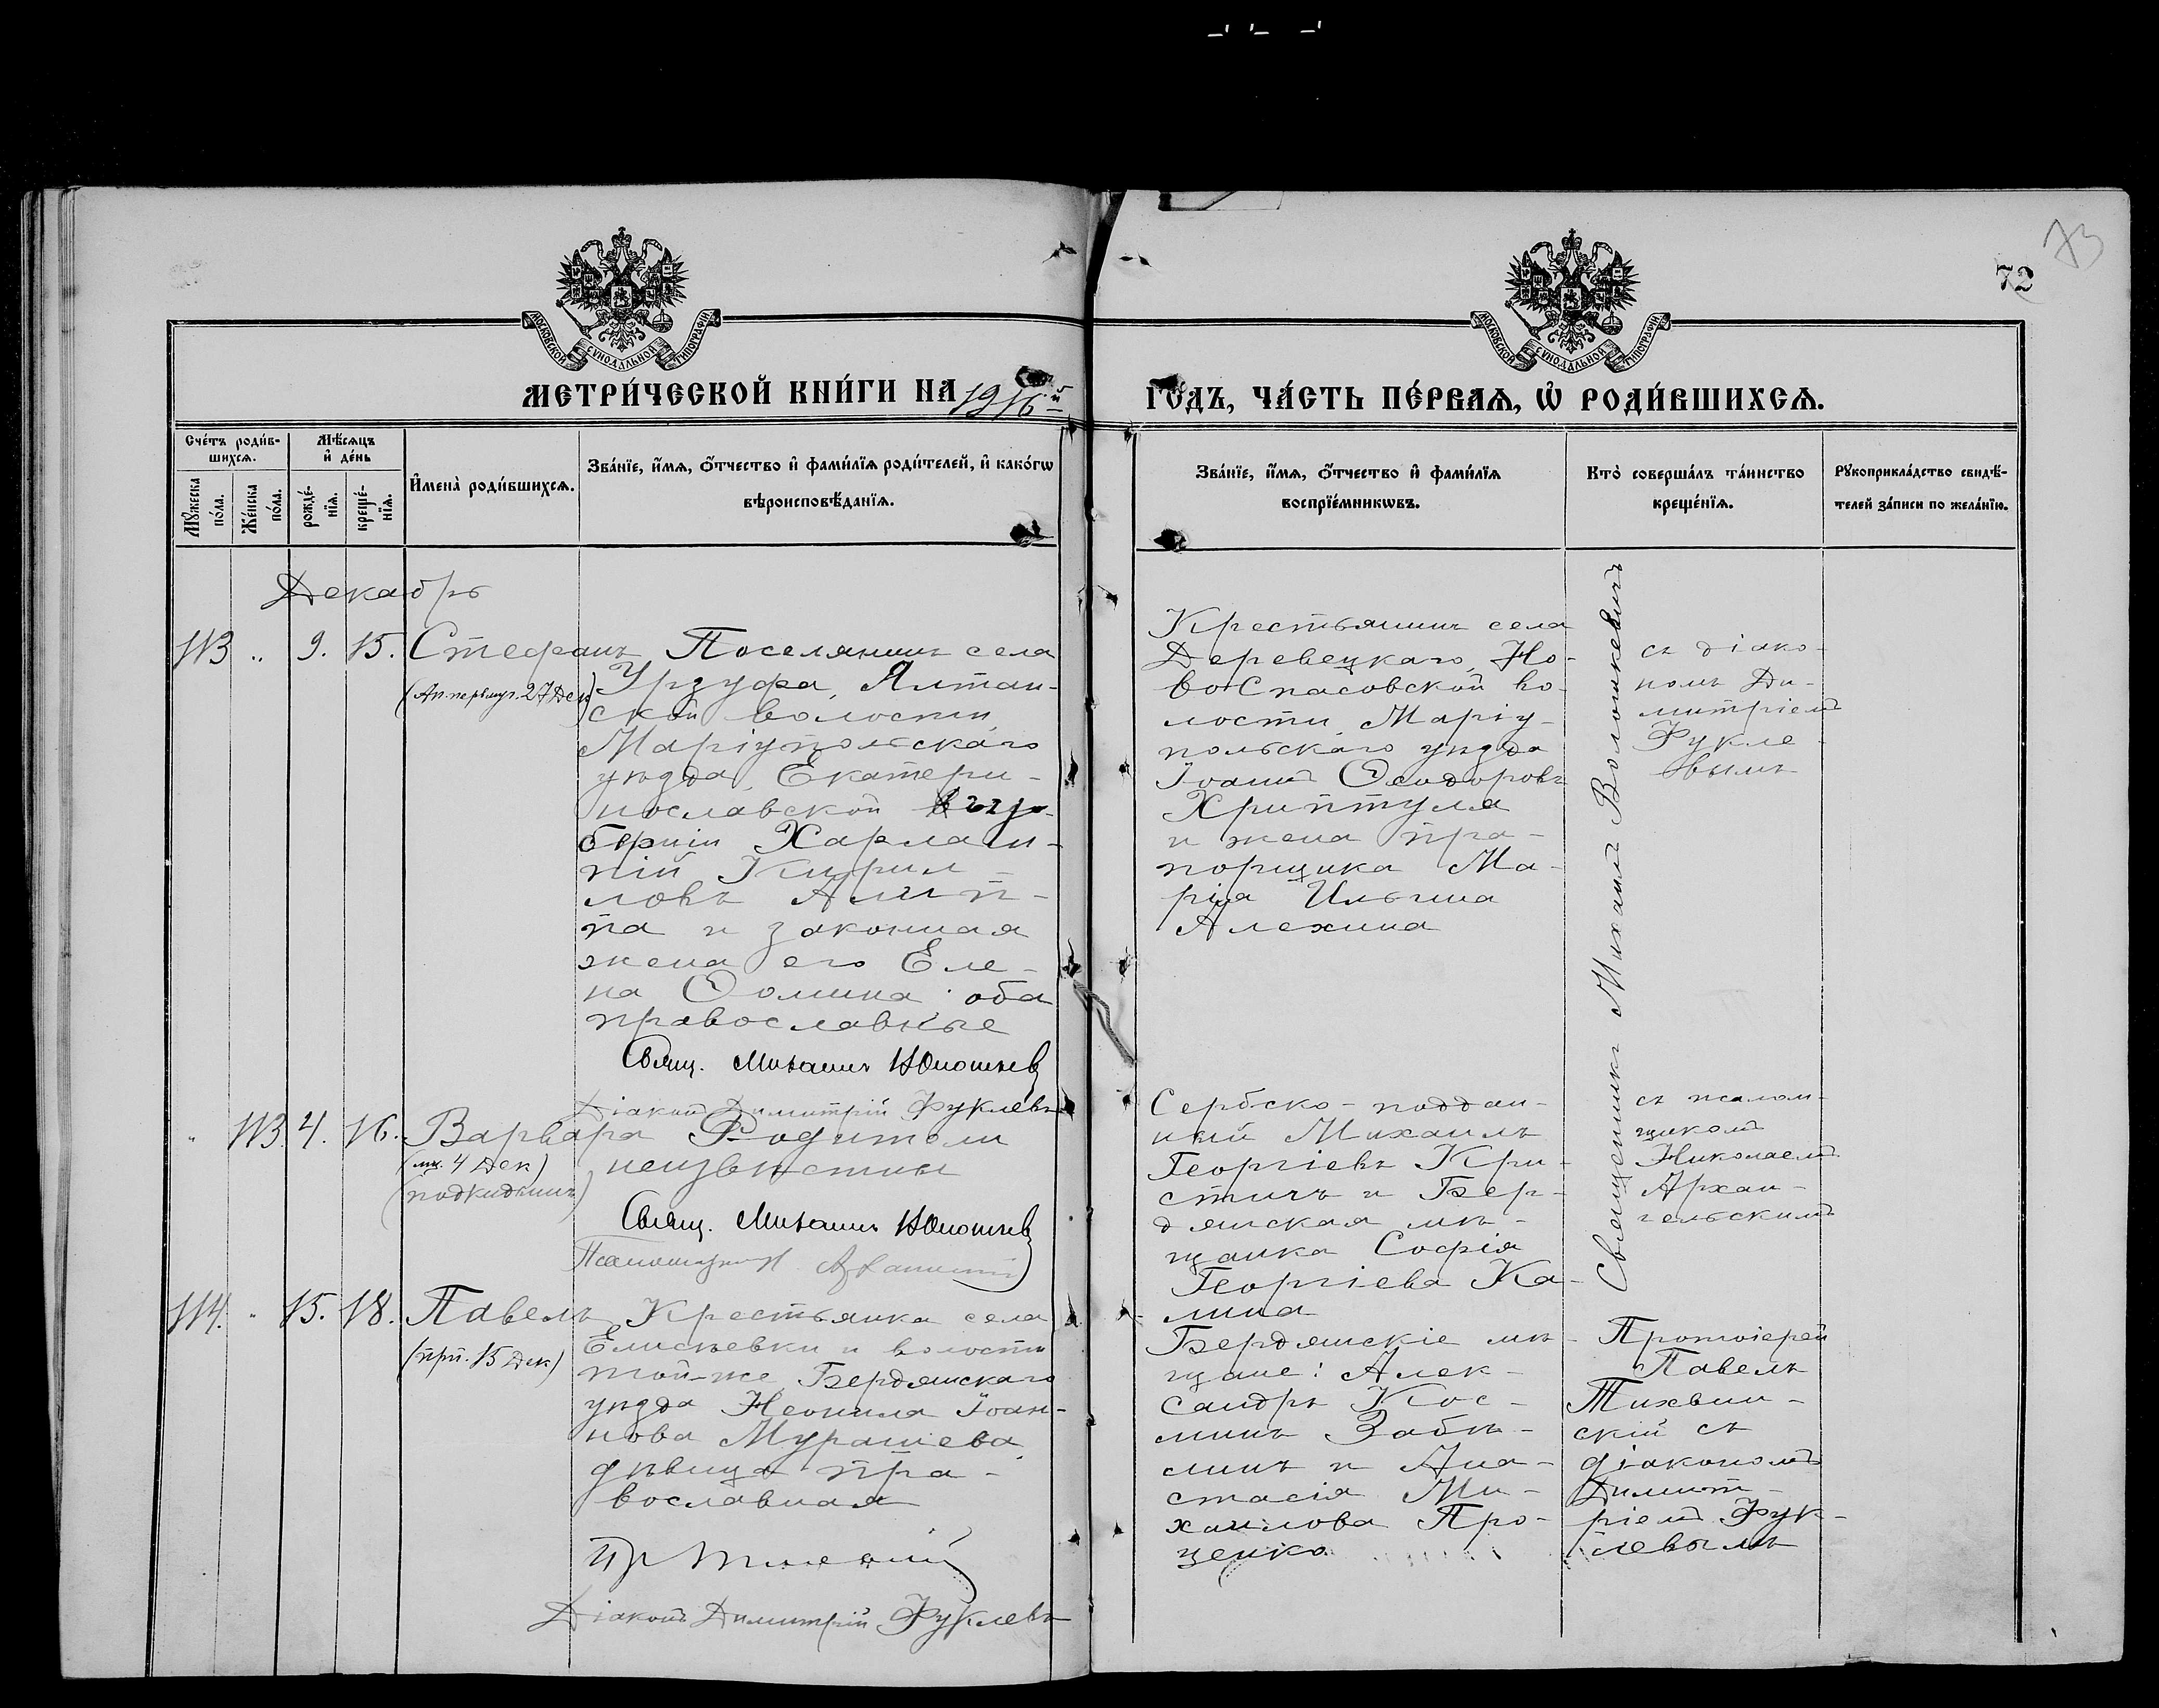 73
72
МОСКОВСКОЙ СУНОДАЛЬНОЙ ТИПОГРАФІИ
МОСКОВСКОЙ СУНОДАЛЬНОЙ ТИПОГРАФІИ
МЕТРИ́ЧЕСКОЙ КНИ́ГИ НА 1916й
ГО́ДЪ, ЧА́СТЬ ПЕ́РВАѦ, Ѡ҆ РОДИ́ВШИХСѦ.
Сче́тъ роди́в-
шихсѧ.
Мѣ́сѧцъ
и҆ де́нь
Мꙋ́жеска
по́ла.
Же́нска
по́ла.
рожде́-
нїѧ.
креще́-
нїѧ.
И҆мена̀ роди́вшихсѧ.
Зва́нїе, и҆́мѧ, ѻ҆́тчество и҆ фами́лїѧ роди́телей, и҆ како́гѡ
вѣроисповѣ́данїѧ.
Зва́нїе, и҆́мѧ, ѻ҆́тчество и҆ фами́лїѧ
воспрїе́мникѡвъ.
Кто̀ соверша́лъ та́инство
креще́нїѧ.
Рꙋкоприкла́дство свидѣ́-
телей за́писи по жела́нїю.
Декабрь
113 „ 9. 15. Стефанъ
(Ап. первмуч. 27 Дек)
Поселянинъ села
Урзуфа, Ялтан-
ской волости,
Маріупольскаго
уѣзда, Екатери-
нославской гу-
берніи Харлам-
пій Кирил-
ловъ
и законная
жена его Еле-
на Ѳомина оба
православные
Свящ. Михаилъ
Діаконъ Димитрій Фуклевъ
Крестьянинъ села
Деревецкаго, Но-
воСпасовской во-
лости, Маріу-
польскаго уѣзда
Іоаннъ Ѳеодоровъ
Хриптула
и жена пра-
порщика Ма-
рія Ильина
Алехина
Священникъ Михаилъ Волошкевичъ
съ діако-
номъ Ди-
митріемъ
Фукле-
вымъ
„ 113. 4. 16. Варвара
(мц. 4 Дек)
(подкидышъ)
Родители
неизвѣстны
Свящ. Михаилъ
Псаломщикъ
Сербско-поддан-
ный Михаилъ
Георгіевъ Кри-
стичъ и Бер-
дянская мѣ-
щанка Софія
Георгіева Ка-
лина
съ псалом-
щикомъ
Николаемъ
Архан-
гельскимъ
114. „ 15. 18. Павелъ
(прп. 15 Дек)
Крестьянка села
Елисѣевки и волости
той-же, Бердянскаго
уѣзда Неонила Іоан-
нова Мурашева
дѣвица пра-
вославная
Діаконъ Димитрій Фуклевъ
Бердянскіе мѣ-
щане: Алек-
сандръ Кос-
минъ Забѣ-
линъ и Ана-
стасія Ми-
хаилова Про-
ценко
Протоіерей
Павелъ
Тихвин-
скій съ
діакономъ
Димит-
ріемъ Фук-
левымъ